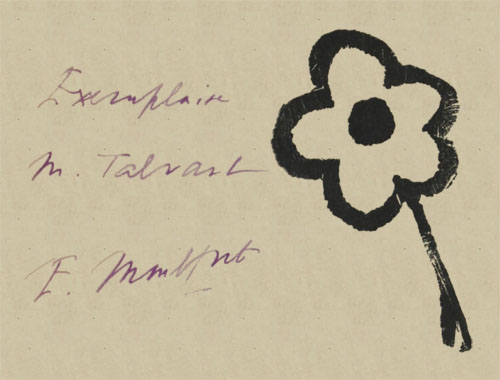 Exemplaire
M. Talvart
E. Montfort